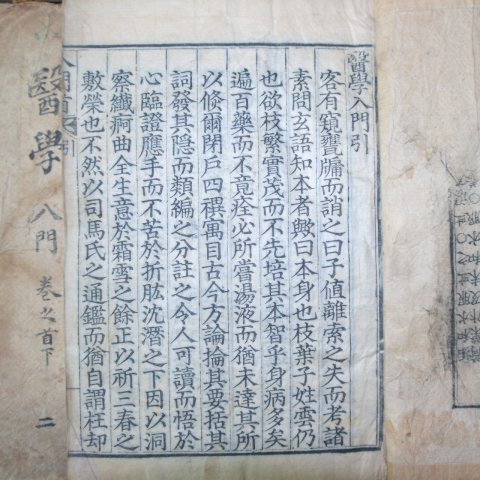 醫學入門引
客有窺壅牖而誚之曰子值離索之失而考諸
素問玄語知本者歟曰本身也枝葉子姓雲仍
也欲枝繁實茂而不先培其本智乎身病多矣
遍百藥而不竟痊必所嘗湯液而猶未達其所
以倏爾閉戶四禩寓目古今方論掄其要括其
詞發其隱而類編之分註之令人可讀而悟於
心臨證應手而不苦於折肱沈潛之下因以洞
察纖痾曲全生意於霜雪之餘正以祈三春之
敷榮也不然以司馬氏之通鑑而猶自謂枉却
醫學
入門
卷之首下
二